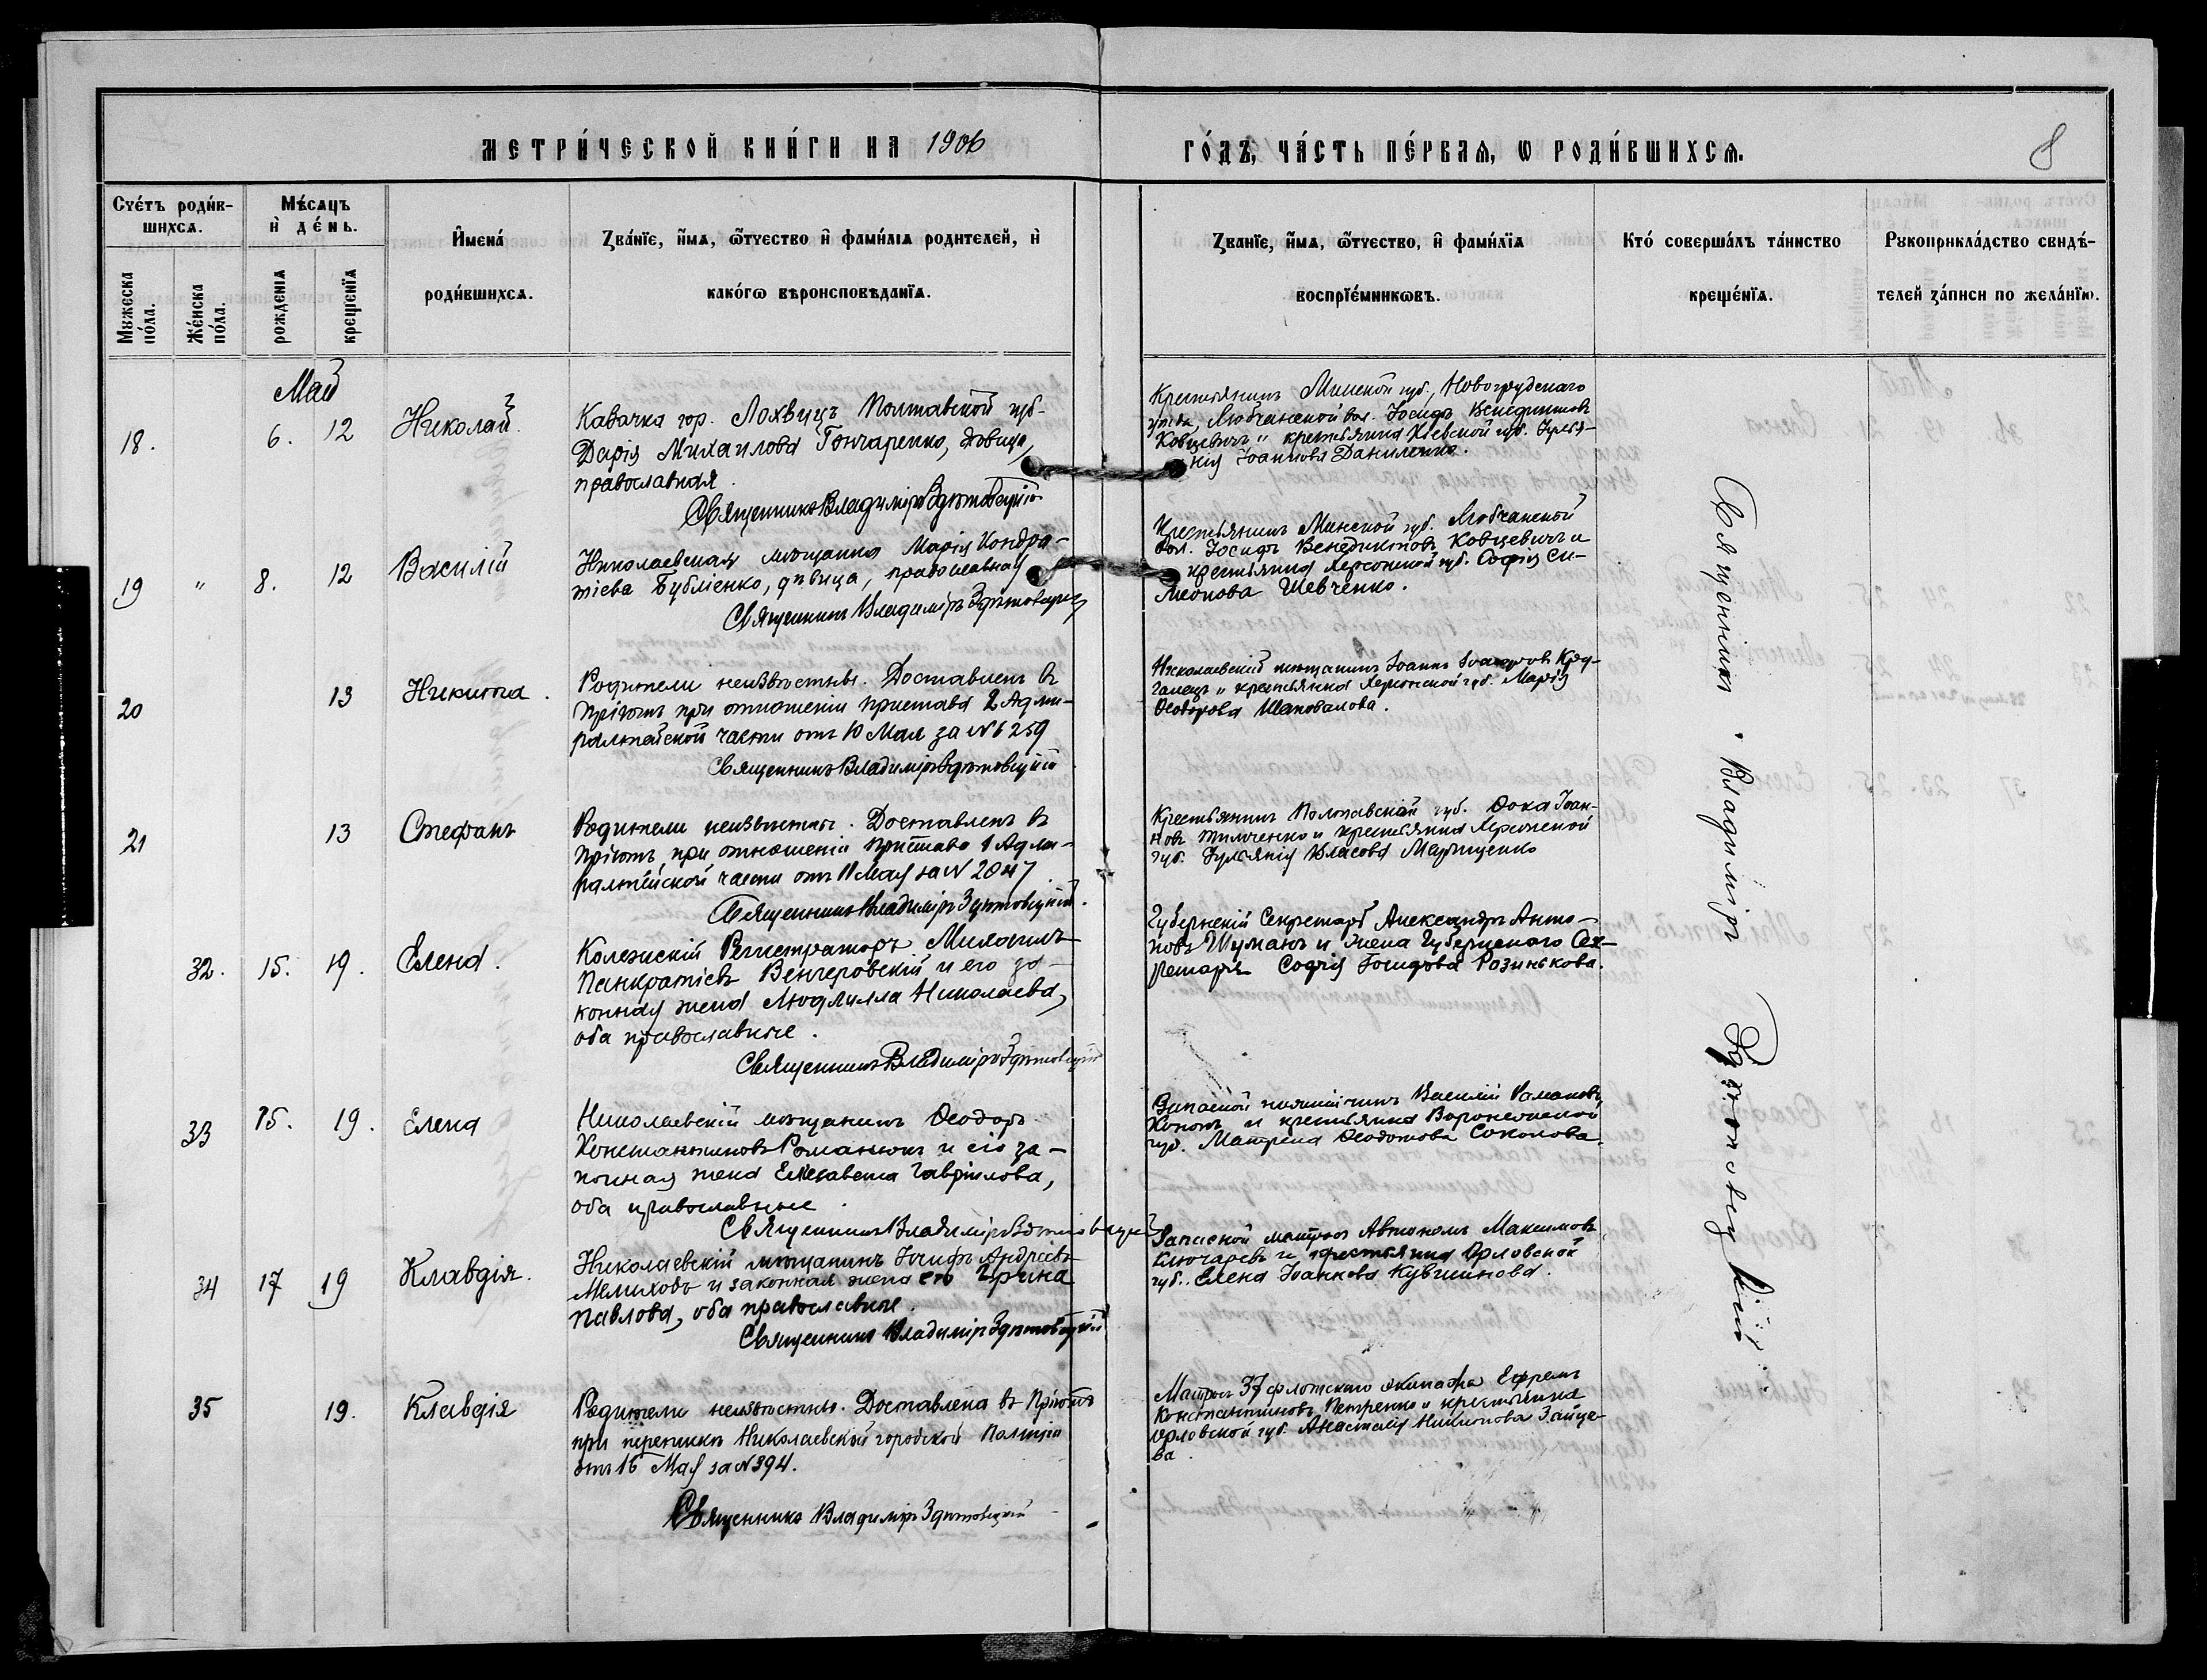 МЕТРИ́ЧЕСКОЙ КНИ́ГИ НА 1906
ГО́ДЪ, ЧА́СТЬ ПЕ́РВАѦ, Ѡ РОДИ́ВШИХСѦ.
8
Счéтъ роди́в-
шихсѧ.
Мѣ́сѧцъ
и҆ де́нь.
Мꙋжеска по́ла.
Же́нска по́ла.
рожденїѧ
крещенїѧ
И҆мена́
роди́вшихсѧ.
Ꙁва́нїе, и҆́мѧ, ѻ҆́тчество и҆ фами́лїѧ родителей, и҆
како́гѡ вѣроисповѣданїѧ.
Ꙁванїе, и҆́мѧ, ѻ҆́тчество, и҆ фами́лїѧ
воспрїе́мникѡвъ.
Кто́ соверша́лъ та́инство
креще́нїѧ.
Рꙋкоприкла́дство свидѣ́-
телей ꙁа́писи по жела́нїю.
Май
18. 6. 12 Николай.
Казачка гор. Лохвицъ Полтавской губ.
Дарія Михаилова Гончаренко, дѣвица,
православная.
Священникъ Владиміръ Здѣтовецкій
Крестьянинъ Минской губ., Новогрудскаго
уѣзда, Любчанской вол. Іосифъ Венедиктовъ
Ковцевичъ и крестьянка Кіевской губ. Іуліа-
нія Іоаннова Даниленко.
19 " 8. 12 Василій
Николаевская мѣщанка Марія Кондра-
тіева Бубліенко, дѣвица, православная
Священникъ Владиміръ Здѣтовецкій
Крестьянинъ Минской губ. Любчанской
вол. Іосифъ Венедиктовъ Ковцевичъ и
крестьянка Херсонской губ. Софія Си-
меонова Шевченко.
20 13 Никита.
Родители неизвѣстны. Доставленъ въ
пріютъ при отношеніи пристава 2 Адми-
ралтейской части отъ 10 Мая за № 6259
Священникъ Владиміръ Здѣтовецкій
Николаевскій мѣщанинъ Іоаннъ
и крестьянка Херсонской губ. Марія
Ѳеодорова Шаповалова.
21 13 Стефанъ
Родители неизвѣстны. Доставленъ въ
пріютъ, при отношеніи пристава 1 Адми-
ралтейской части отъ 11 Мая за № 2047.
Священникъ Владиміръ Здѣтовецкій.
Крестьянинъ Полтавской губ. Ѳока Іоан-
новъ Тимченко и крестьянка Херсонской
губ. Іуліянія Власова Марищенко
32. 15. 19. Елена.
Колежскій Регистраторъ Михаилъ
Панкратіевъ Венгеровскій и его за-
конная жена Людмилла Николаева,
оба православные.
Священникъ Владиміръ Здѣтовецкій
Губернскій Секретарь Александръ Анто-
новъ Шуманъ и жена Губернскаго Сек-
ретаря Софія Іосифова Разинькова.
33 15. 19. Елена
Николаевскій мѣщанинъ Ѳеодоръ
Константиновъ Романюкъ и его за-
конная жена Елисавета Гавріилова,
оба православные.
Священникъ Владиміръ Здѣтовецкій
Запасной нижній чинъ Василій Романовъ
и крестьянка Воронежской
губ. Матрена Ѳеодотова Соколова.
34 17 19 Клавдія.
Николаевскій мѣщанинъ Іосифъ Андреевъ
Мелиховъ и законная жена его Ирина
Павлова, оба православные.
Священникъ Владиміръ Здѣтовецкій
Запасной матросъ Автономъ Максимовъ
Ключаревъ и крестьянка Орловской
губ. Елена Іоаннова Кувшинова.
35 19. Клавдія
Родители неизвѣстны. Доставлена въ пріютъ
при перепискѣ Николаевской городской Полиціи
отъ 16 Мая за № 394.
Священникъ Владиміръ Здѣтовецкій
Матросъ 37 флотскаго экипажа Ефремъ
Константиновъ Петренко и крестьянка
Орловской губ. Анастасія Никонова Зайце-
ва.
Священникъ Владиміръ Здѣтовецкій